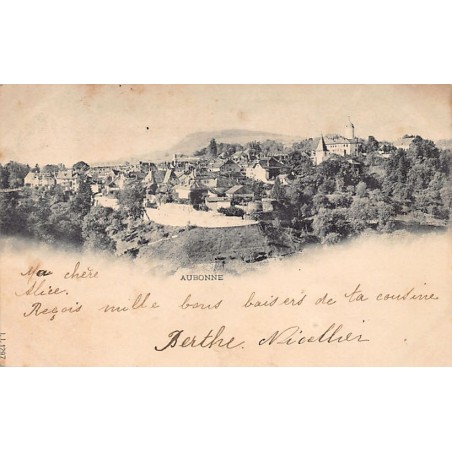 AUBONNE
Ma chère
Alice.
Reçois mille bons baisers de ta cousine
Berthe. Nicollier